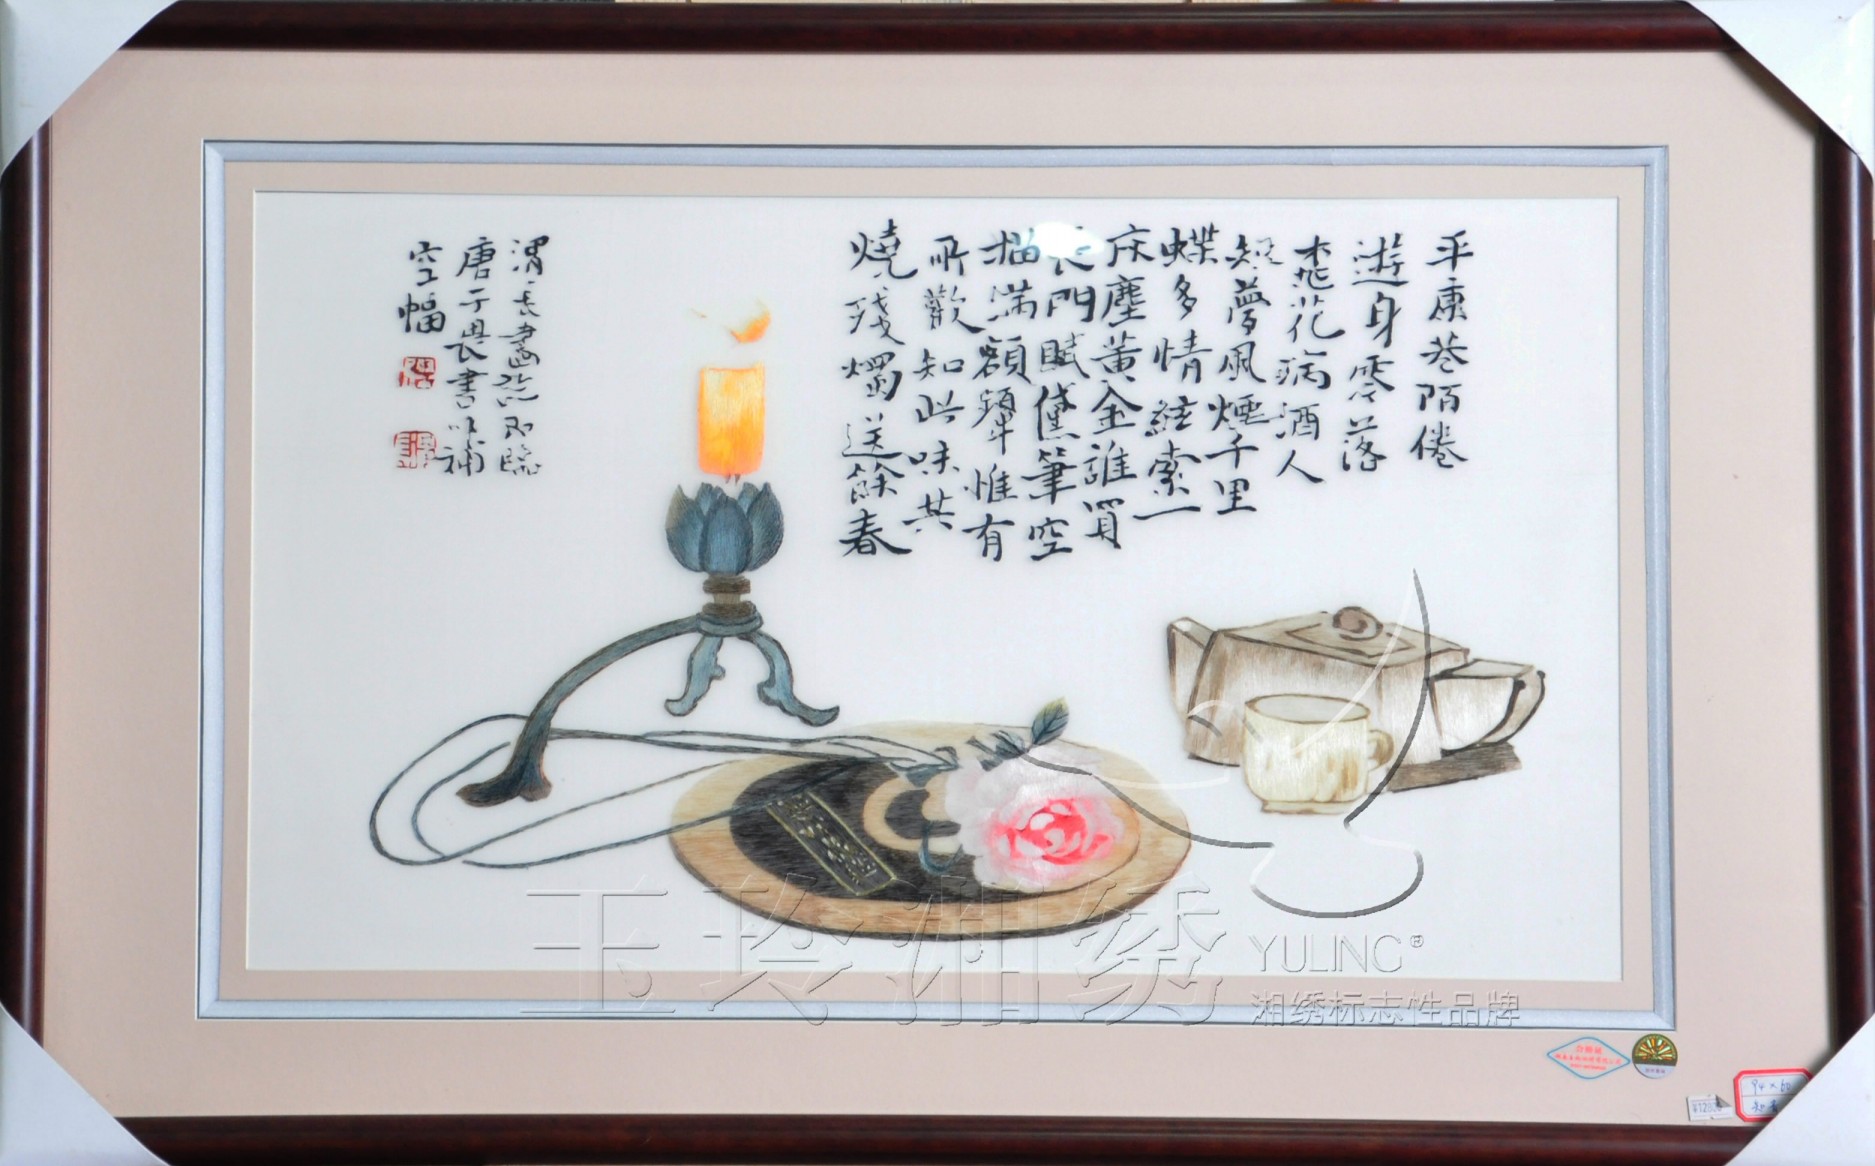 平康巷陌倦
遊身零落
桃花病酒人
短夢風煙千里
蝶多情絃索一
床塵黃金誰買
長門賦黛筆空
描滿額顰惟有
所歡知此味共
燒殘燭送餘春
渭長畫��即臨
唐子畏書以補
空幅
玉玲湘绣
YULING®
湘绣标志性品牌
合格证
94×60